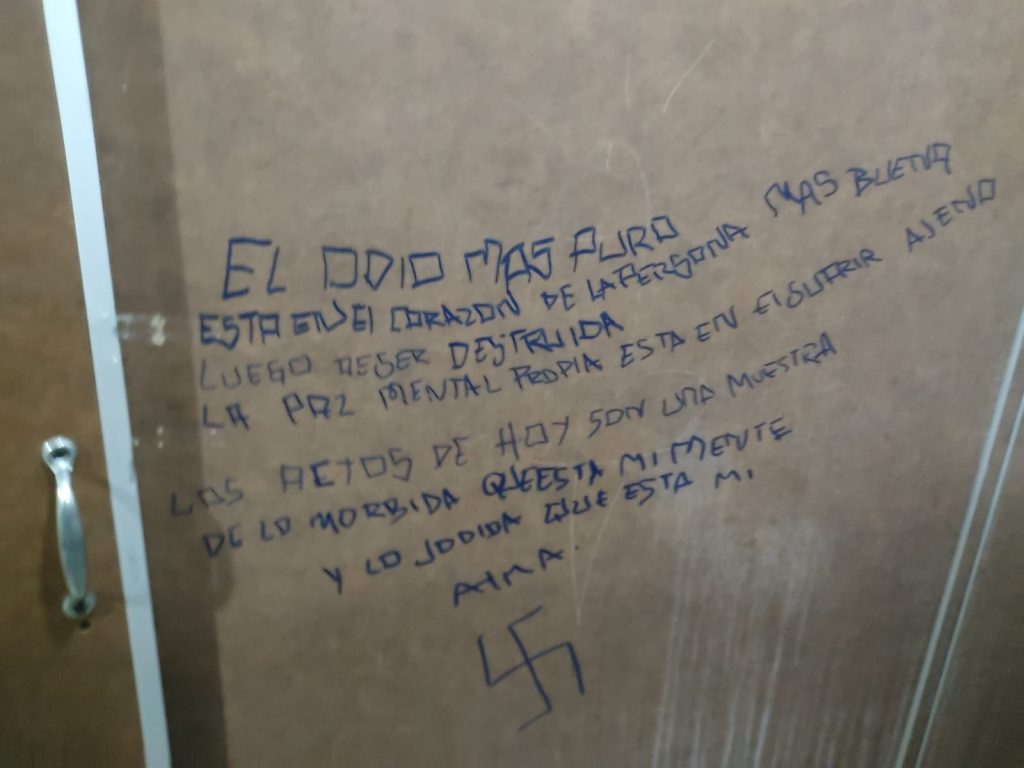 EL ODIO MAS PURO
ESTA EN El CORAZON DE LA PERSONA MAS BUENA
LUEGO DE SER DESTRUIDA
LA PAZ MENTAL PROPIA ESTA EN El SUFRIR AJENO
LOS ACTOS DE HOY SON UNA MUESTRA
DE LO MORBIDA QUE ESTA MI MENTE
Y LO JODIDA QUE ESTA MI
AlMA.